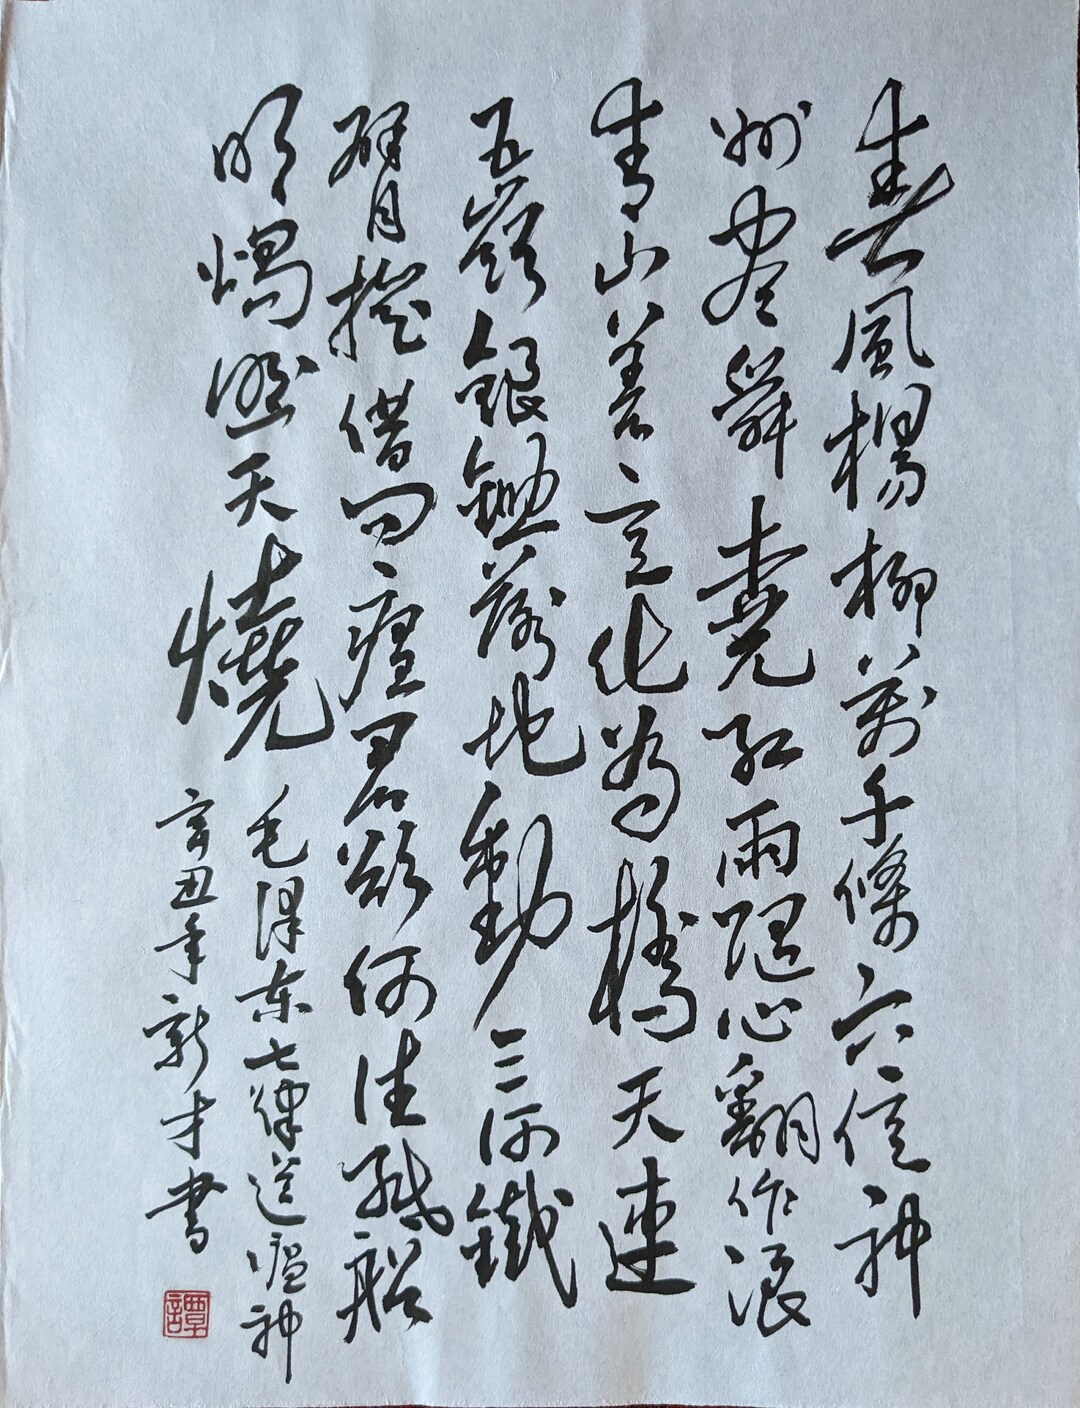 春風楊柳萬千條六億神
州盡舜堯紅雨隨心翻作浪
青山着意化為橋天連
五嶺銀鋤落地動三河鐵
臂搖借問瘟君欲何往紙船
明燭照天燒
毛泽东七律送瘟神
辛丑年新才書
譚